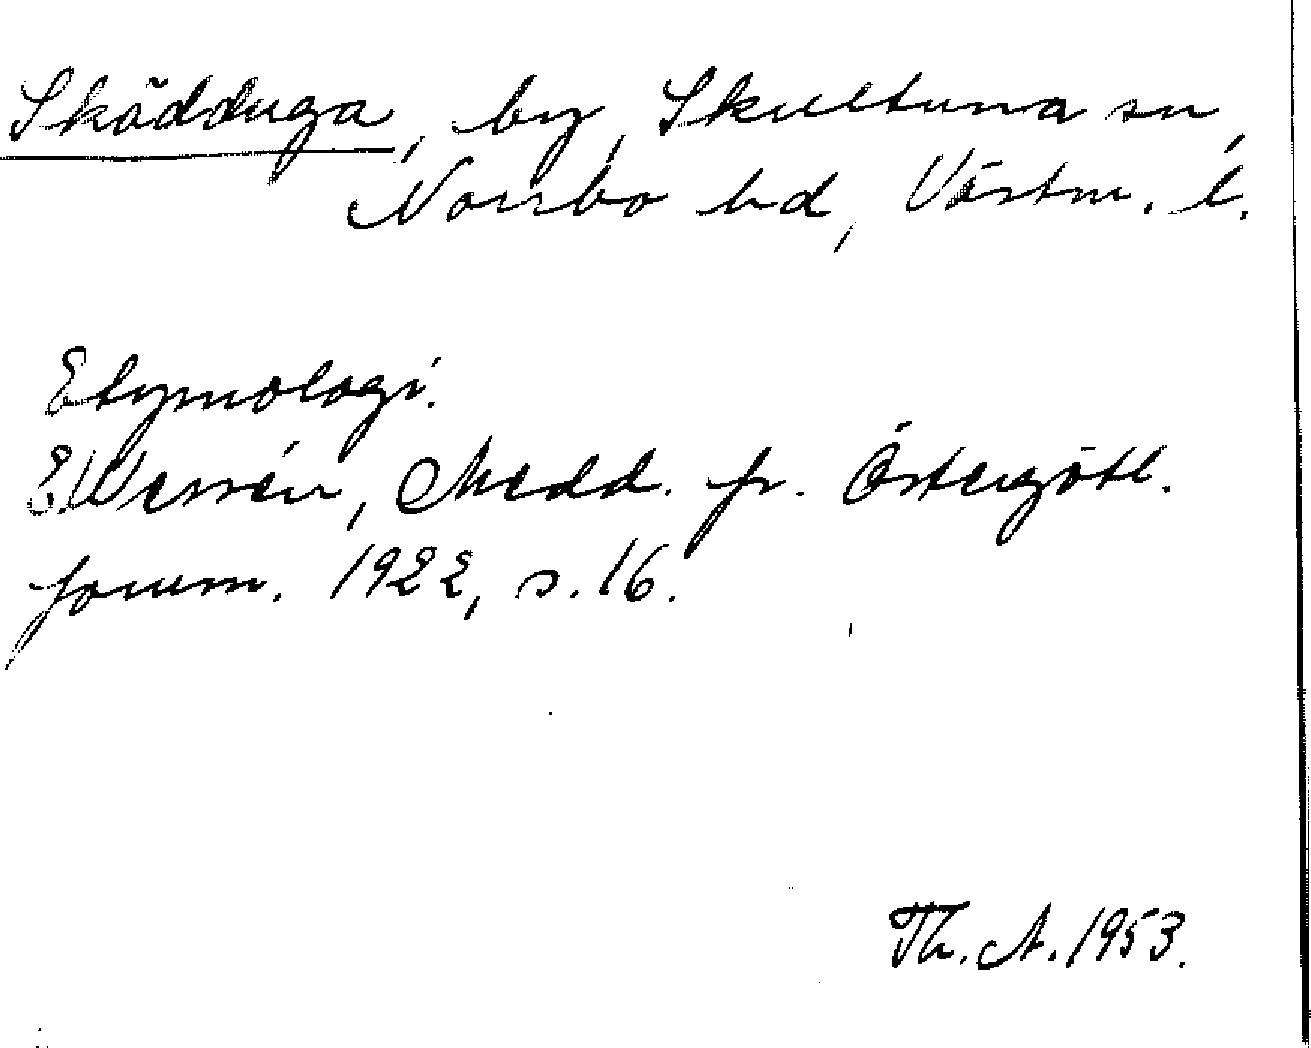 Sködduga, by, Skultuna sn,
Norrbo hd, Västm. l.
Etymologi.
E Wessén, Medd. fr. Östergötl.
fornm. 1922, s. 16.
Th. A. 1953.